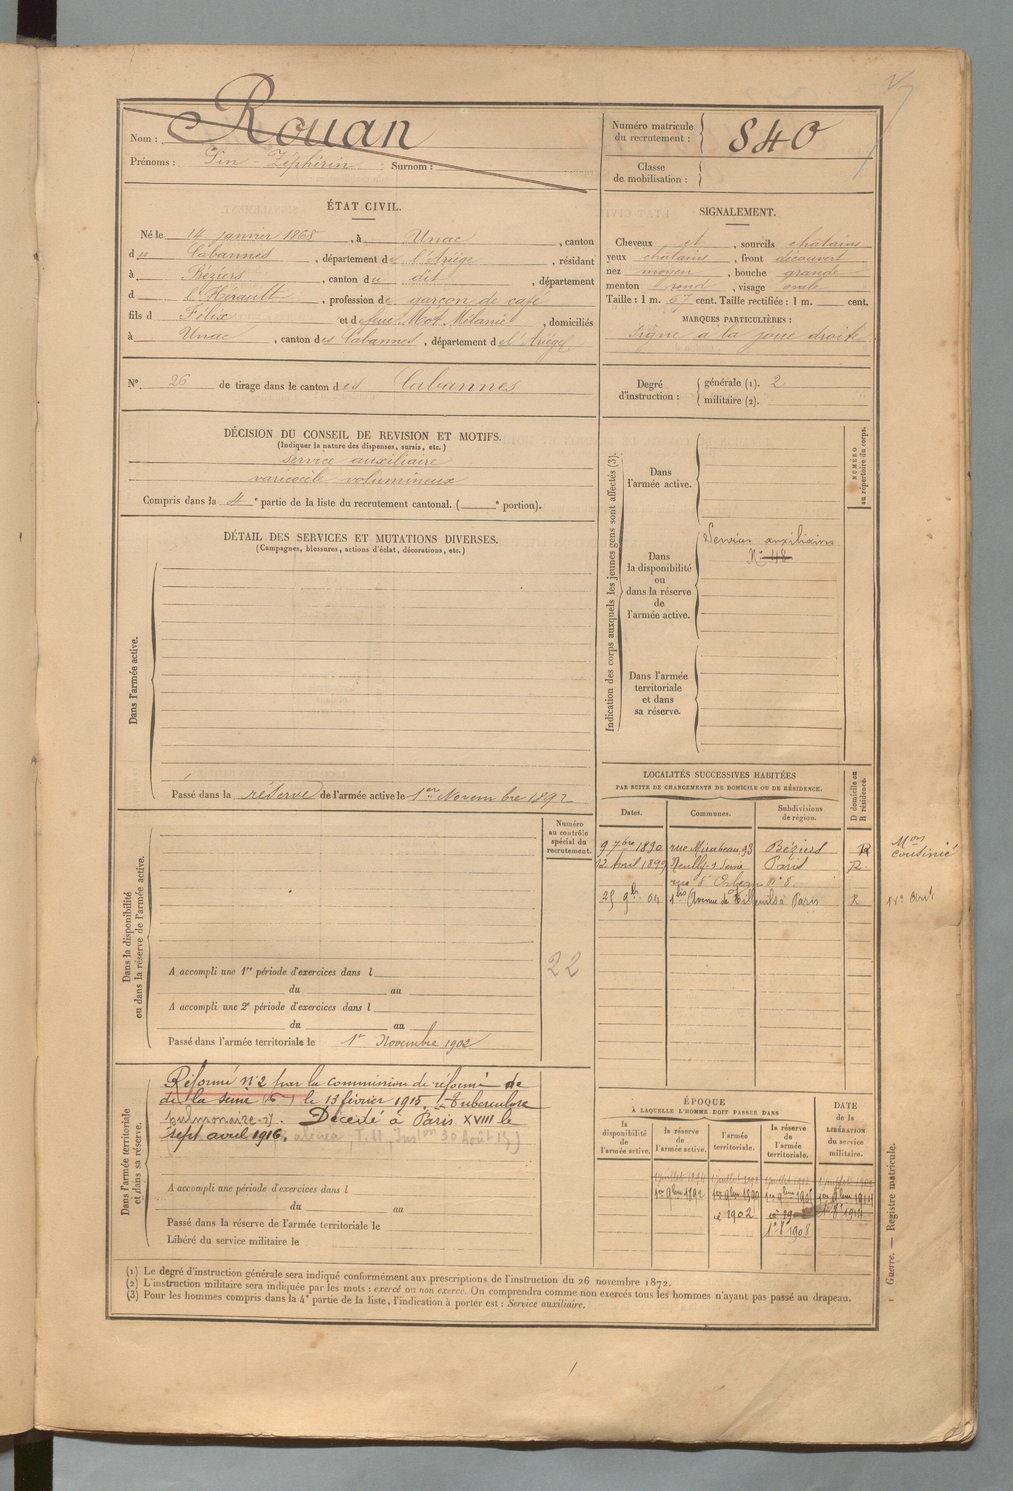 Nom : Rouan
Prénoms : Lin - Zéphirin Surnom :
Numéro matricule du recrutement : 840
Classe de mobilisation :
ÉTAT CIVIL.
Né le 14 janvier 1868, à Unac, canton
du Cabannes, département de l'Ariège, résidant
à Béziers, canton du dit, département
d l'Hérault, profession de garçon de café
fils d Félix et de feue Mot Mélanie, domiciliés
à Unac, canton des Cabannes, département de l'Ariège
N° 26 de tirage dans le canton des Cabannes
SIGNALEMENT.
Cheveux et, sourcils châtains
yeux châtains, front découvert
nez moyen, bouche grande
menton rond, visage ovale
Taille : 1 m. 67 cent. Taille rectifiée : 1 m. cent.
MARQUES PARTICULIÈRES :
Signe à la joue droite
Degré d'instruction : générale (1). 2
militaire (2).
DÉCISION DU CONSEIL DE REVISION ET MOTIFS.
(Indiquer la nature des dispenses, sursis, etc.)
service auxiliaire
varicocèle volumineux
Compris dans la 4e partie de la liste du recrutement cantonal. ( e portion).
DÉTAIL DES SERVICES ET MUTATIONS DIVERSES.
(Campagnes, blessures, actions d'éclat, décorations, etc.)
Dans l'armée active.
Passé dans la réserve de l'armée active le 1er Novembre 1892
Indication des corps auxquels les jeunes gens sont affectés (3).
NUMÉRO au répertoire du corps.
Dans l'armée active.
Dans la disponibilité ou dans la réserve de l'armée active.
Services auxiliaires
N° 48
Dans l'armée territoriale et dans sa réserve.
LOCALITÉS SUCCESSIVES HABITÉES
PAR SUITE DE CHANGEMENTS DE DOMICILE OU DE RÉSIDENCE.
Dates. Communes. Subdivisions de région. D domicile ou R résidence.
9 7bre 1890 rue Mirabeau, 93 Béziers R
12 Avril 1899 Neuilly s Seine Paris R.
rue d'Orléans n° 8.
25 9bre 04 1bis Avenue de Tilleuls à Paris R
Mon
cousinié
Dans la disponibilité ou dans la réserve de l'armée active.
Numéro au contrôle spécial du recrutement.
22
A accompli une 1re période d'exercices dans l
du au
A accompli une 2e période d'exercices dans l
du au
Passé dans l'armée territoriale le 1er Novembre 1902
Dans l'armée territoriale et dans sa réserve.
Réformé n°2 par la commission de réforme de
de la seine le 13 février 1915. Tuberculose
pulmonaire. Décédé à Paris XVIII le
sept avril 1916.
A accompli une période d'exercices dans l
du au
Passé dans la réserve de l'armée territoriale le
Libéré du service militaire le
ÉPOQUE
À LAQUELLE L'HOMME DOIT PASSER DANS
DATE DE LA LIBÉRATION du service militaire.
la disponibilité de l'armée active. la réserve de l'armée active. l'armée territoriale. la réserve de l'armée territoriale.
1er 9bre 1892
1902
1908
(1) Le degré d'instruction générale sera indiqué conformément aux prescriptions de l'instruction du 26 novembre 1872.
(2) L'instruction militaire sera indiquée par les mots : exercé ou non exercé. On comprendra comme non exercés tous les hommes n'ayant pas passé au drapeau.
(3) Pour les hommes compris dans la 4e partie de la liste, l'indication à porter est : Service auxiliaire.
Guerre. — Registre matricule.